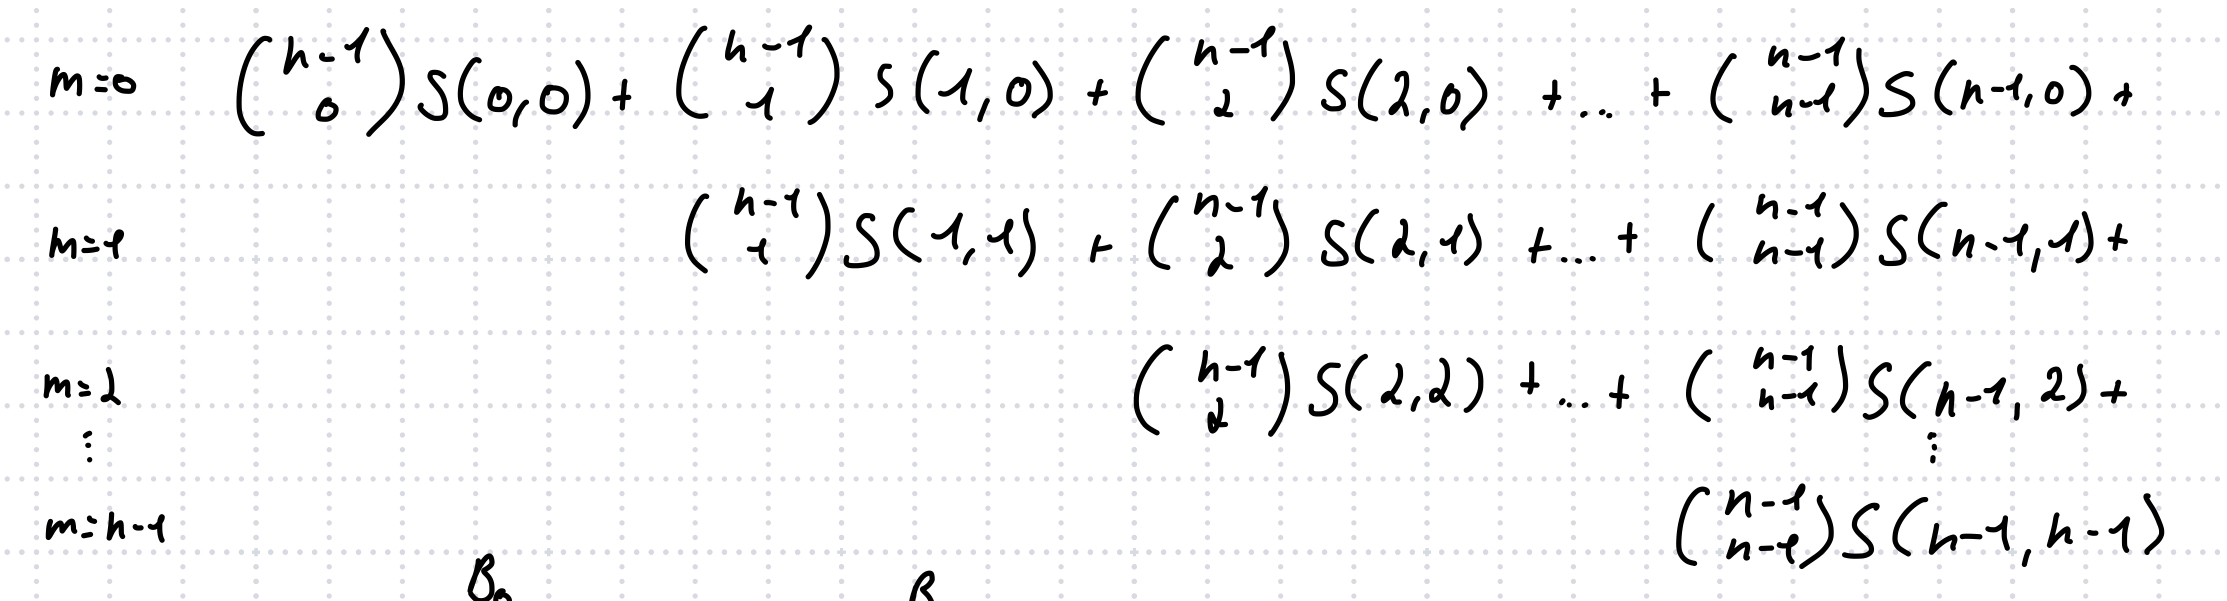 m=0 $\binom{n-1}{0} S(0,0) + \binom{n-1}{1} S(1,0) + \binom{n-1}{2} S(2,0) + \ldots + \binom{n-1}{n-1} S(n-1,0) +$
m=1 $\binom{n-1}{1} S(1,1) + \binom{n-1}{2} S(2,1) + \ldots + \binom{n-1}{n-1} S(n-1,1) +$
m=2 $\binom{n-1}{2} S(2,2) + \ldots + \binom{n-1}{n-1} S(n-1,2) +$
⋮ ⋮
m=n-1 $\binom{n-1}{n-1} S(n-1,n-1)$